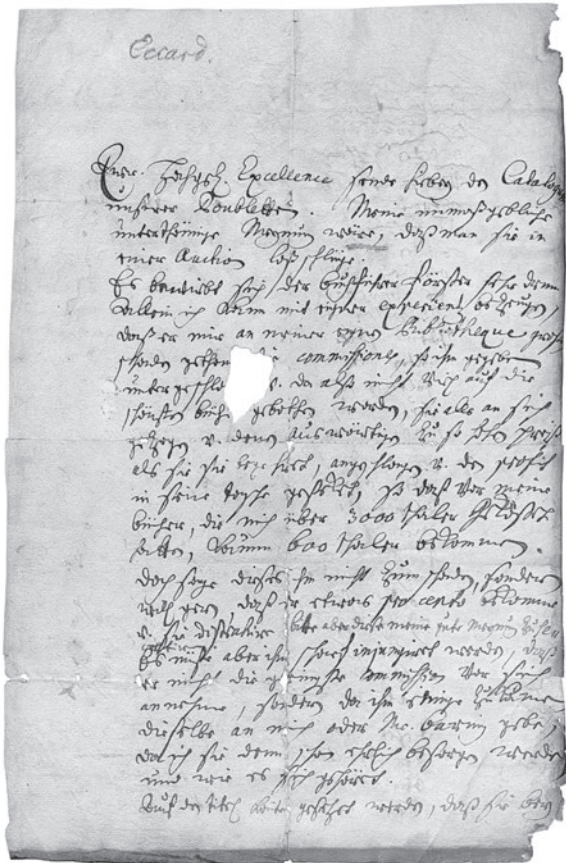 Eccard.
Ewer. Hochgbl Excellence sende hiebey den Catalogum
unserer Doubletten. Meine unmaßgebliche
unterthänige Meynung wäre, daß man sie in
einer Auction loßschlüge.
Es bewirbt sich der buchführer Förster sehr drum
Allein ich kann mit eigner experienz bezeugen,
daß er mir an meiner eignen Bibliotheque großen
schaden gethan commissiones, so ihm gegeben
untergeschla v. da also nicht auf die
schönsten bücher gebothen worden, sie alle an sich
gezogen v. denen auswärtigen zu so hohen preiß
als sie sie begehret, angeschlagen v. den profit
in seine tasche gestecket, so daß vor meine
bücher, die mich über 3000 thaler gekostet
hatten, kaum 600 thaler bekommen.
Doch sage dieses ihm nicht zum schaden, sondern
will gern, daß er etwas pro cento bekomme
v. sie distrahire bitte aber diese meine gute Meynung
Es müste aber ihm scharf injungiret werden, daß
er nicht die geringste commission vor sich
annehme, sondern da ihm einige zukämen
dieselbe an mich oder Mr. barin gebe,
da ich sie denn schon ehrlich besorgen werde
und wie es sich gehöret.
Auf den titel könte gesetzet werden, daß sie bey